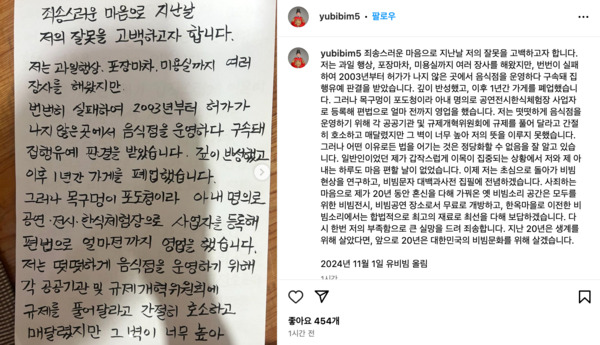 죄송스러운 마음으로 지난날
저의 잘못을 고백하고자 합니다.
저는 과일행상, 포장마차, 미용실까지 여러
장사를 해왔지만.
번번히 실패하여 2003년부터 허가가
나지 않은곳에서 음식점을 운영하다 구속돼
집행유예 판결을 받았습니다. 깊이 반성했고
이후 1년간 가게를 폐업했습니다.
그러나 목구멍이 포도청이라 아내 명의로
공연·전시·한식체험장으로 사업자를 등록해
편법으로 얼마전까지 영업을 했습니다.
저는 떳떳하게 음식점을 운영하기 위해
각 공공기관 및 규제개혁위원회에
규제를 풀어달라고 간절히 호소하고
매달렸지만 그 벽이 너무 높아
yubibim5 • 팔로우
yubibim5 죄송스러운 마음으로 지난날 저의 잘못을 고백하고자 합니다.
저는 과일 행상, 포장마차, 미용실까지 여러 장사를 해왔지만, 번번이 실패
하여 2003년부터 허가가 나지 않은 곳에서 음식점을 운영하다 구속돼 집
행유예 판결을 받았습니다. 깊이 반성했고, 이후 1년간 가게를 폐업했습니
다. 그러나 목구멍이 포도청이라 아내 명의로 공연전시한식체험장 사업자
로 등록해 편법으로 얼마 전까지 영업을 했습니다. 저는 떳떳하게 음식점을
운영하기 위해 각 공공기관 및 규제개혁위원회에 규제를 풀어 달라고 간절
히 호소하고 매달렸지만 그 벽이 너무 높아 저의 뜻을 이루지 못했습니다.
그러나 어떤 이유로든 법을 어기는 것은 정당화할 수 없음을 잘 알고 있습
니다. 일반인이었던 제가 갑작스럽게 이목이 집중되는 상황에서 저와 제 아
내는 하루도 마음 편할 날이 없었습니다. 이제 저는 초심으로 돌아가 비빔
현상을 연구하고, 비빔문자 대백과사전 집필에 전념하겠습니다. 사죄하는
마음으로 제가 20년 동안 혼신을 다해 가꿔온 옛 비빔소리 공간은 모두를
위한 비빔전시, 비빔공연 장소로 무료로 개방하고, 한옥마을로 이전한 비
빔소리에서는 합법적으로 최고의 재료로 최선을 다해 보답하겠습니다. 다
시 한번 저의 부족함으로 큰 실망을 드려 죄송합니다. 지난 20년은 생계를
위해 살았다면, 앞으로 20년은 대한민국의 비빔문화를 위해 살겠습니다.
2024년 11월 1일 유비빔 올림
1시간
좋아요 454개
1시간 전